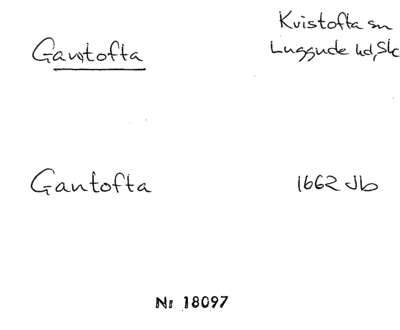 Gantofta
Kvistofta sn
Luggude hd, Sk
Gantofta
1662 Jb
Nr 18097